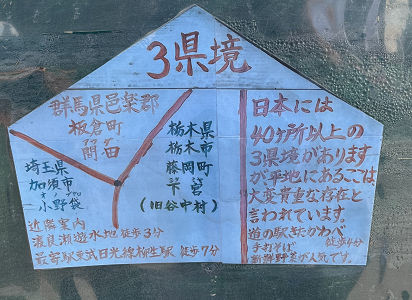 3県境
群馬県邑楽郡
板倉町
間田
栃木県
栃木市
藤岡町
下宮
(旧谷中村)
埼玉県
加須市
小野袋
近隣案内
渡良瀬遊水地 徒歩3分
最寄駅 東武日光線柳生駅 徒歩7分
日本には
40ヶ所以上の
3県境があります
が平地にあるここは
大変貴重な存在と
言われています。
道の駅きたかわべ
徒歩4分
手打そば
新鮮野菜が人気です。